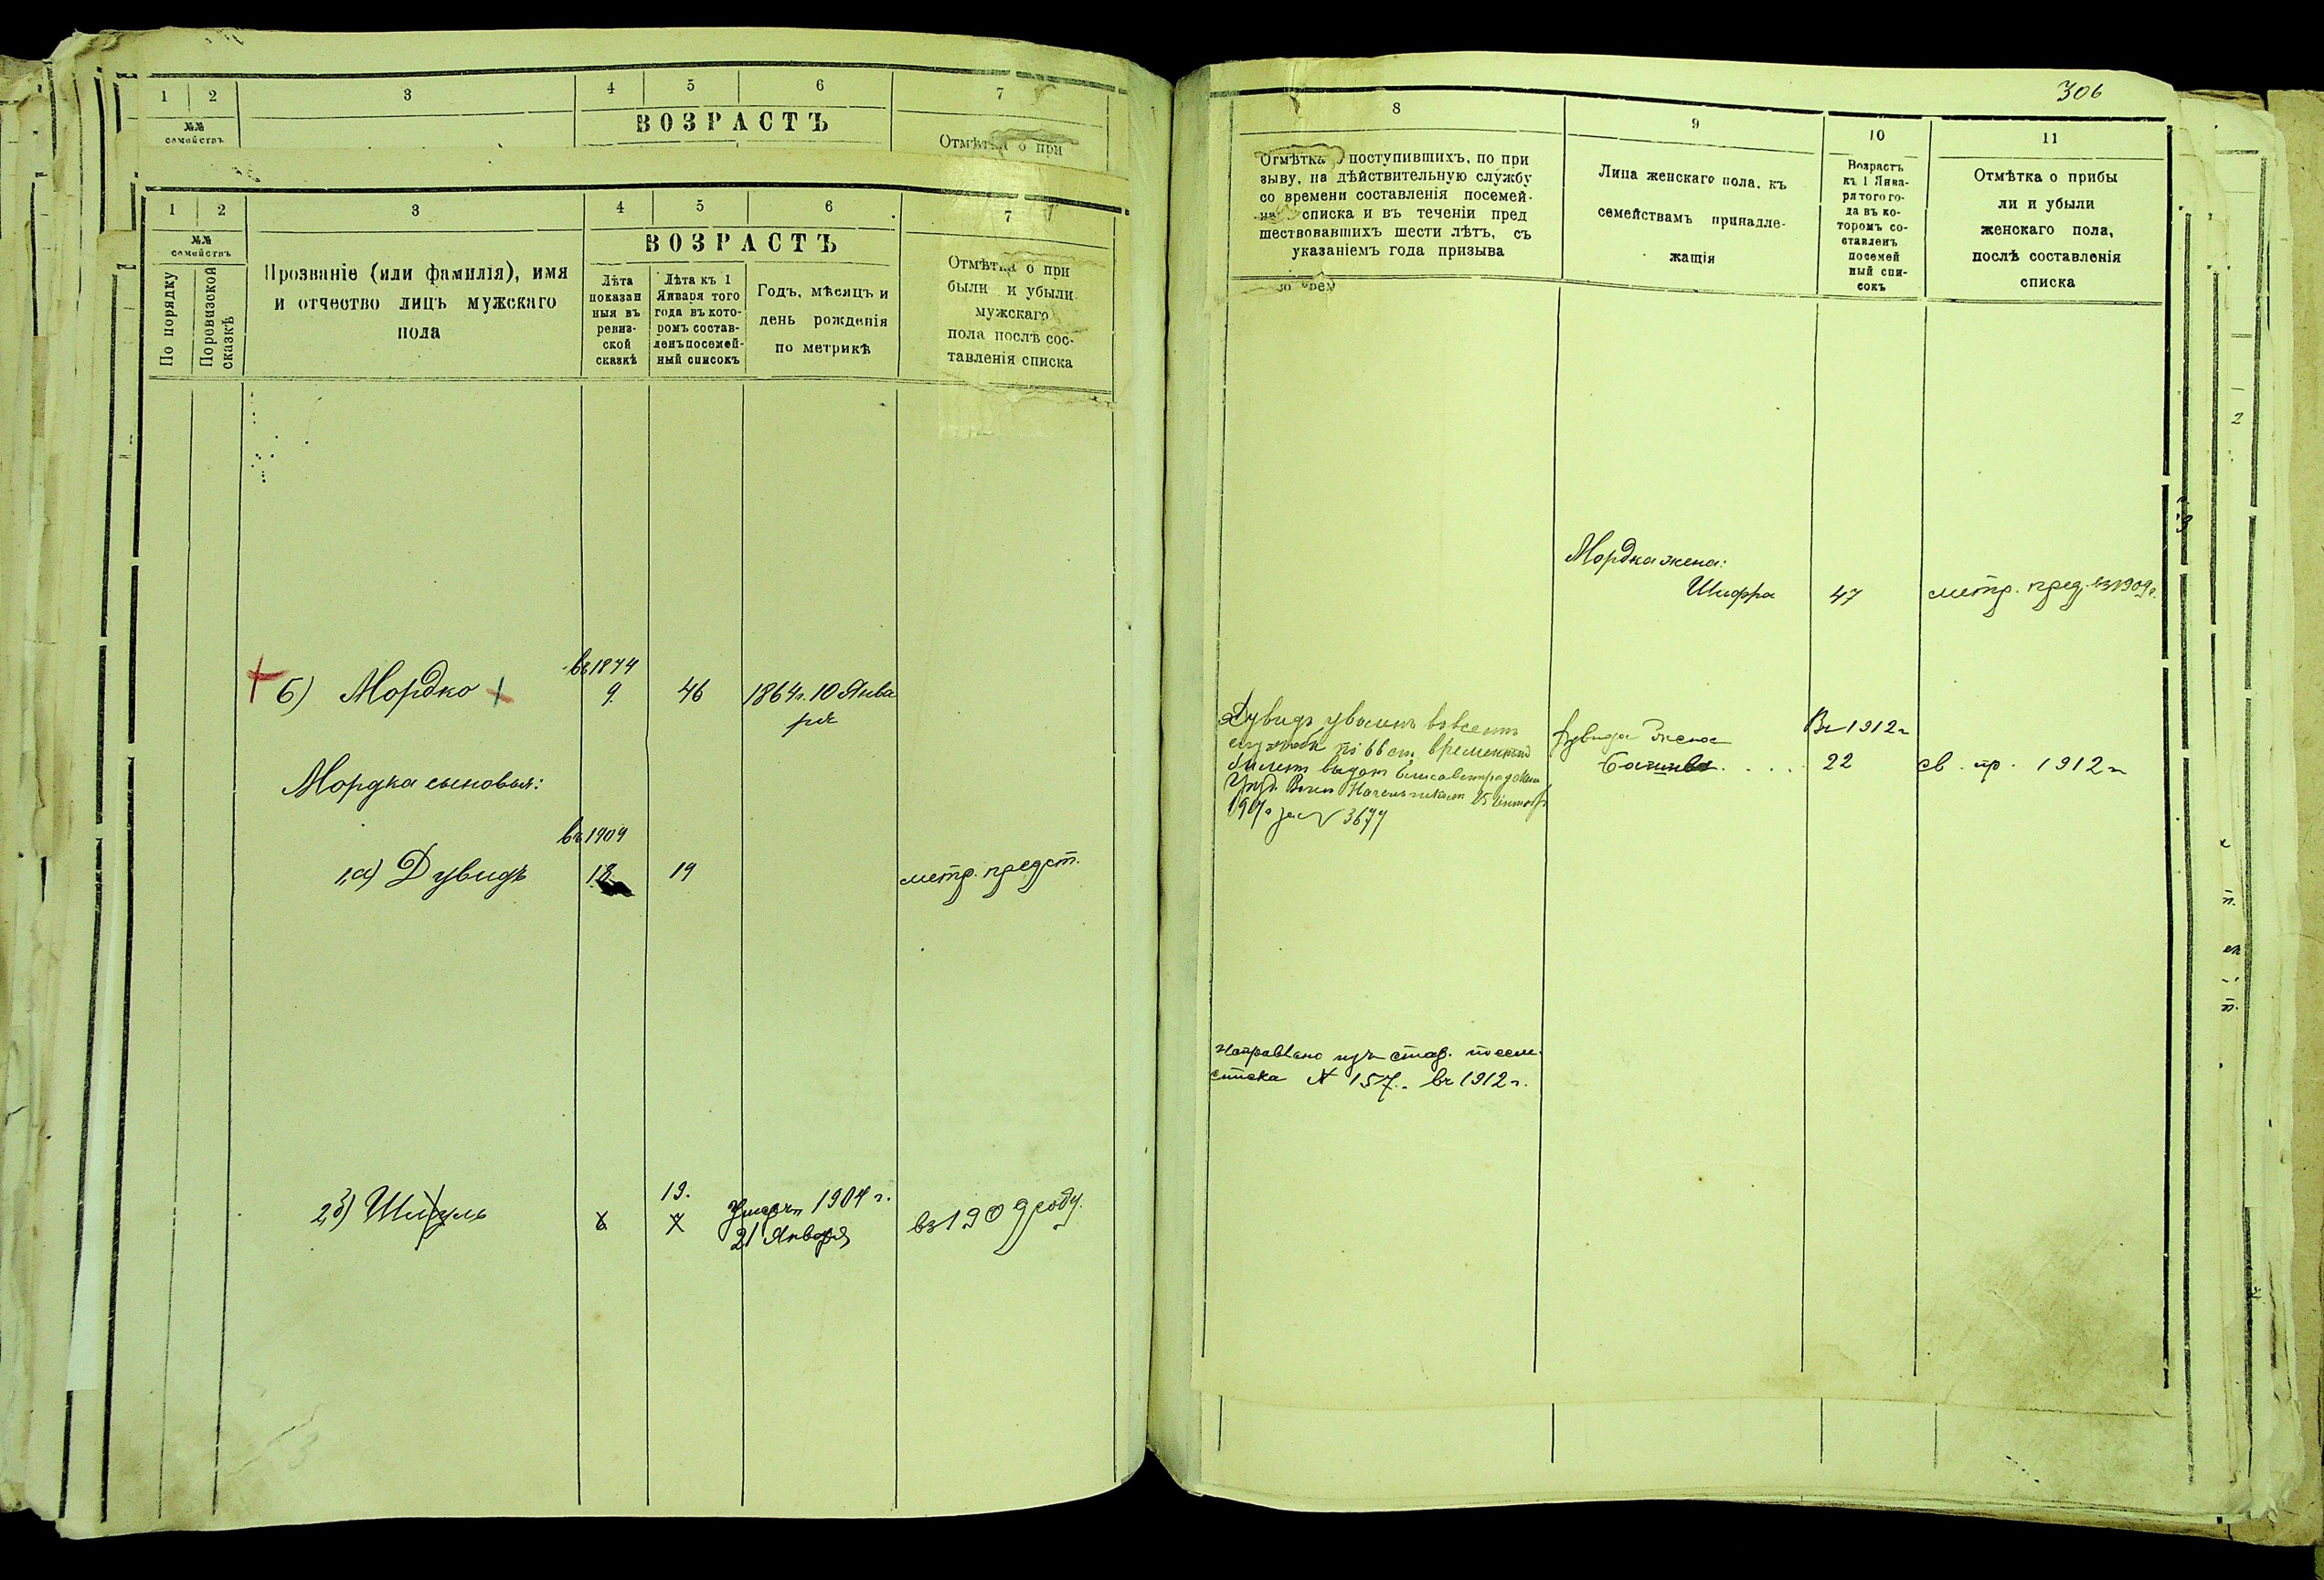 1
2
3
4
5
6
7
№№
семействъ
ВОЗРАСТЪ
Отмѣтка о при
1
2
3
4
5
6
7
№№
семействъ
По порядку
По ревизской
сказкѣ
Прозваніе (или фамилія), имя
и отчество лицъ мужскаго
пола
ВОЗРАСТЪ
Лѣта
показан
ныя въ
ревиз-
ской
сказкѣ
Лѣта къ 1
Января того
года въ кото-
ромъ состав-
ленъ посемей-
ный списокъ
Годъ, мѣсяцъ и
день рожденія
по метрикѣ
Отмѣтка о при
были и убыли
мужскаго
пола послѣ сос-
тавленія списка
въ 1874
б) Мордко
9
46
1864 г. 10 Янва
ря
Мордка сыновья:
въ 1909
1,а) Дувидъ
18
19
метр. предст.
19.
2,б) Шмуль
6
7
Умеръ 1904 г.
21 Января
въ 1909 году.
306
8
9
10
11
Отмѣтка о поступившихъ, по при
зыву, на дѣйствительную службу
со времени составленія посемей-
на списка и въ теченіи пред
шествовавшихъ шести лѣтъ, съ
указаніемъ года призыва
Лица женскаго пола, къ
семействамъ принадле-
жащія
Возрастъ
къ 1 Янва-
ря того го-
да въ ко-
торомъ со-
ставленъ
посемей
ный спи-
сокъ
Отмѣтка о прибы
ли и убыли
женскаго пола,
послѣ составленія
списка
со врем
Мордка жена:
Шифра
47
метр. пред. въ 1909 г.
Дувидъ уволенъ
службы по 66 ст. временный
билетъ выдан Елисаветградскимъ
Уѣзд. Воин. Начальникомъ 25
за № 3677
Дувида жена
Въ 1912 г
22
св. пр. 1912 г
Направлено изъ стар. посем.
списка № 157. въ 1912 г.
2